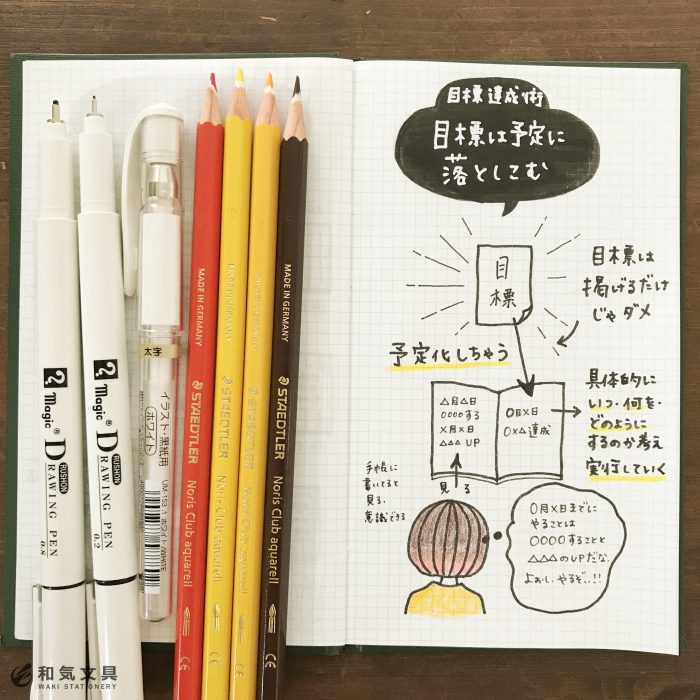 目標達成術
目標は予定に
落としこむ
目
標
目標は
掲げるだけ
じゃダメ
予定化しちゃう
△月△日
○○○○する
×月×日
△△△ UP
○月×日
○×△達成
具体的に
いつ・何を・
どのように
するのか考え
実行していく
手帳に
書いてると
見る、
意識できる
見る
○月×日までに
やることは
○○○○することと
△△△のUPだな
よぉし、やるぞ、!!
Magic®
DRUSHON
DRAWING PEN
0.8
Magic®
DRUSHON
DRAWING PEN
0.2
太字
イラスト・黒紙用
(ホワイト)
UM-153 1 ホワイト/WHITE
MADE IN GERMANY
STAEDTLER
Noris Club aquarell
CE
MADE IN GERMANY
STAEDTLER
Noris Club aquarell
CE
MADE IN GERMANY
STAEDTLER
Noris Club aquarell
CE
MADE IN GERMANY
STAEDTLER
Noris Club aquarell
CE
和気文具
WAKI STATIONERY